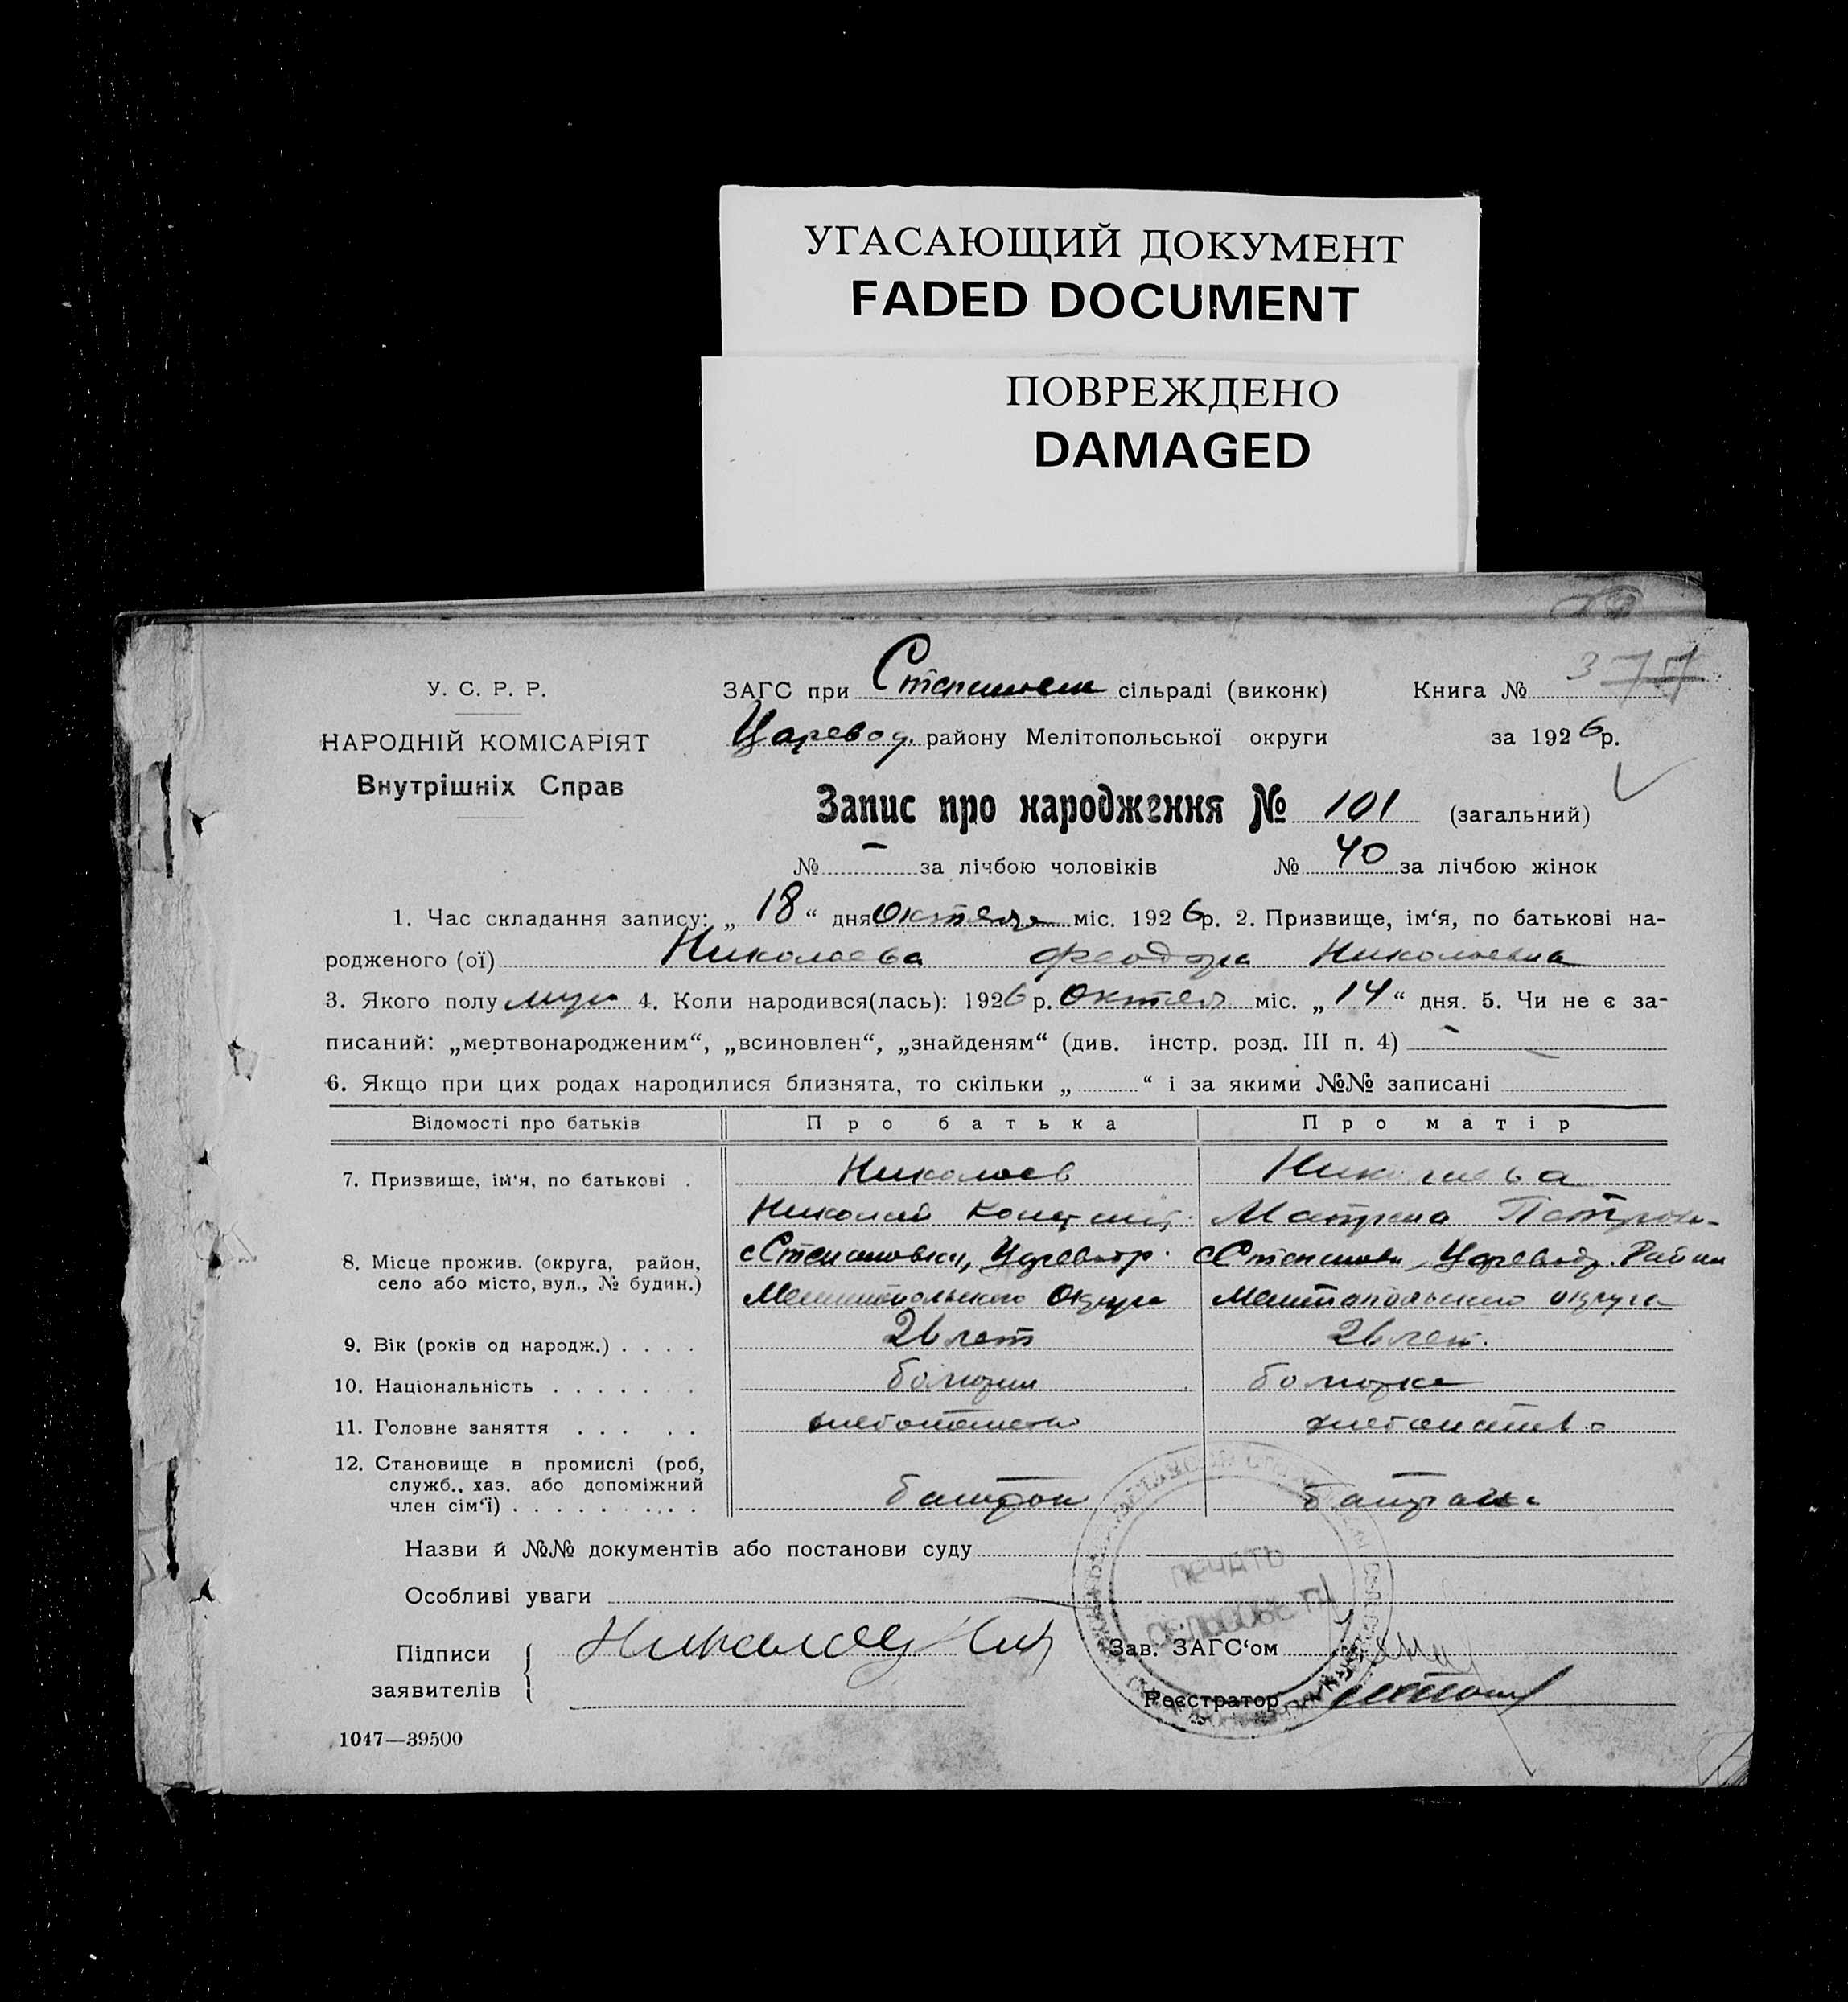 УГАСАЮЩИЙ ДОКУМЕНТ
FADED DOCUMENT
ПОВРЕЖДЕНО
DAMAGED
У. С. Р. Р.
НАРОДНІЙ КОМІСАРІЯТ
Внутрішніх Справ
ЗАГС при сільраді (виконк) Книга № 377
Царевод. району Мелітопольської округи за 1926 р.
Запис про народження № 101 (загальний)
№ – за лічбою чоловіків № 40 за лічбою жінок
1. Час складання запису: „18“ дня октября міс. 1926 р. 2. Призвище, ім‘я, по батькові на-
родженого (ої) Николаева Феодора Николаевна
3. Якого полу муж 4. Коли народився(лась): 1926 р. октяб міс. „14“ дня. 5. Чи не є за-
писаний: „мертвонародженим“, „всиновлен“, „знайденям“ (див. інстр. розд. III п. 4) –
6. Якщо при цих родах народилися близнята, то скільки „ “ і за якими №№ записані
Відомості про батьків Про батька Про матір
7. Призвище, ім‘я, по батькові . Николаев Николаева
Николай Констант. Матрена Петров-
8. Місце прожив. (округа, район, с Степановки, Царевод р. с Степановки, Царевод. Района
село або місто, вул., № будин.) Мелитопольского Округа Мелитопольского округа
9. Вік (років од народж.) . . . . 26 лет 26 лет.
10. Національність . . . . . . . болгарин болгарка
11. Головне заняття . . . . . хлебопашество хлебопашество
12. Становище в промислі (роб,
служб., хаз. або допоміжний
член сім‘ї) . . . . . . . . . батрак батрачка
Назви й №№ документів або постанови суду
Особливі уваги
ПЕЧАТЬ
СЕЛЬСОВЕТА
Підписи Николаев Ник Зав. ЗАГС‘ом
заявителів Реєстратор
1047—39500